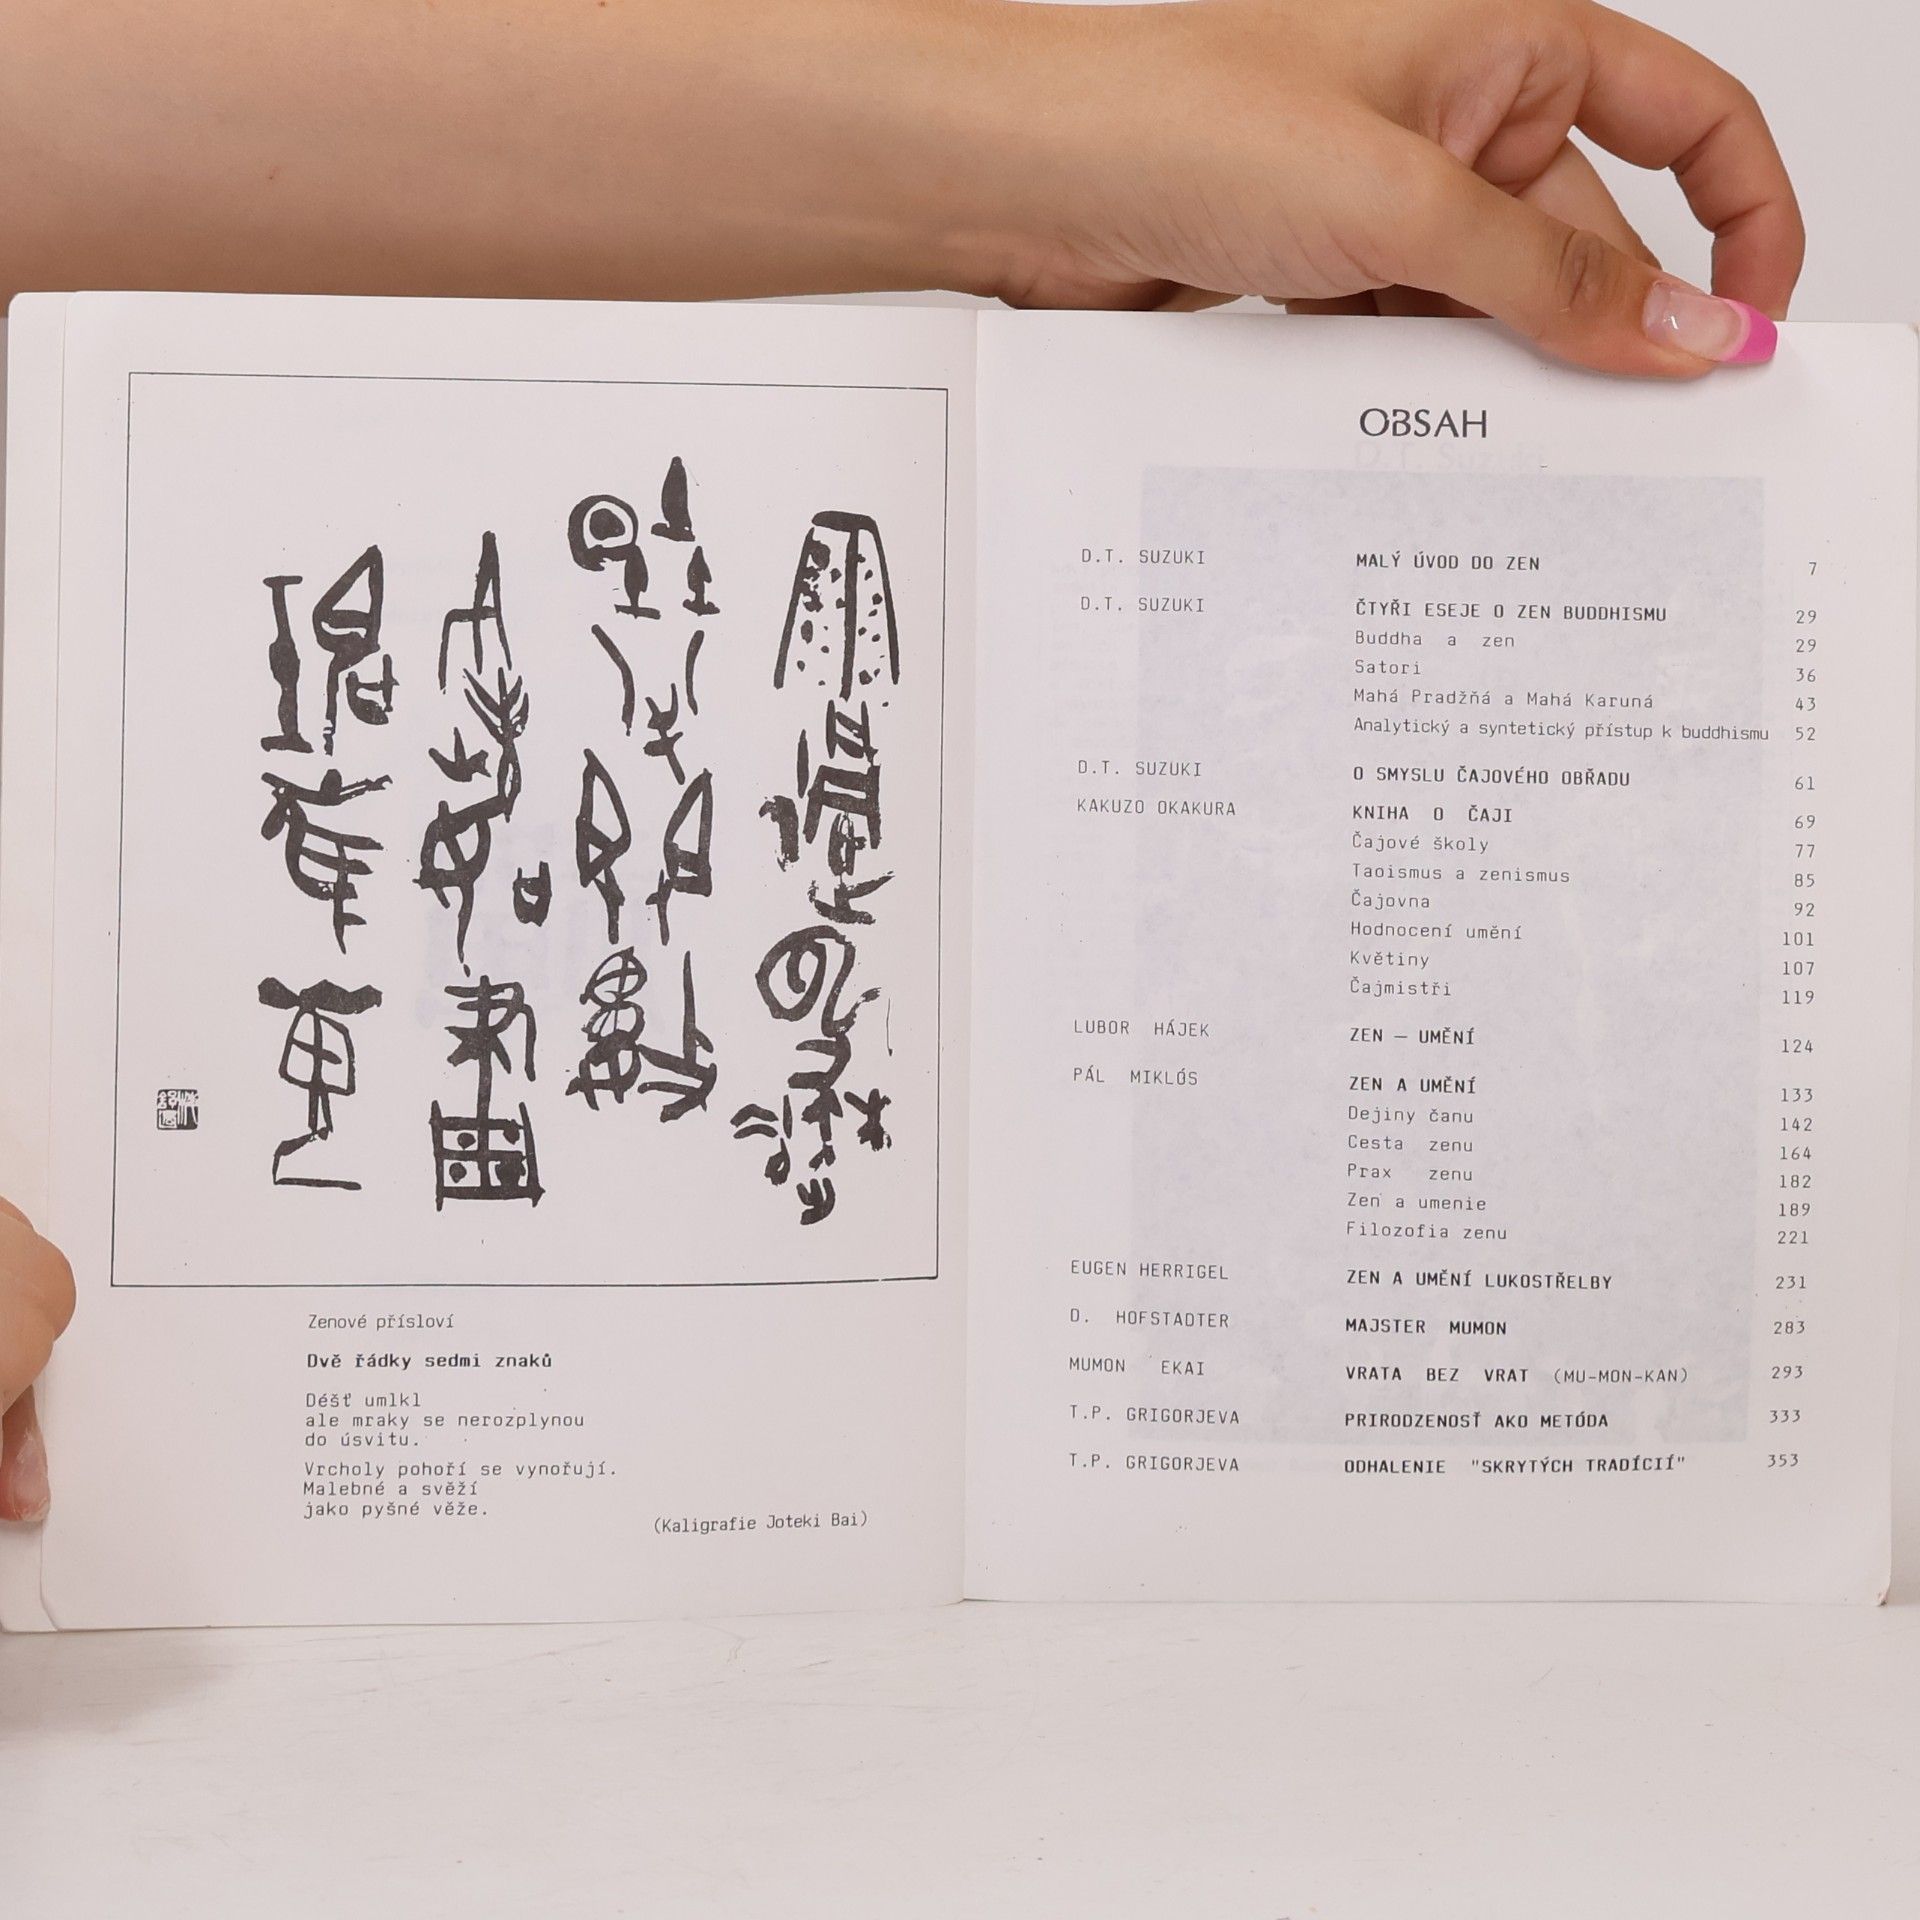 Zenové přísloví
Dvě řádky sedmi znaků
Déšť umlkl
ale mraky se nerozplynou
do úsvitu.
Vrcholy pohoří se vynořují.
Malebné a svěží
jako pyšné věže.
(Kaligrafie Joteki Bai)
OBSAH
D.T. SUZUKI MALÝ ÚVOD DO ZEN 7
D.T. SUZUKI ČTYŘI ESEJE O ZEN BUDDHISMU 29
Buddha a zen 29
Satori 36
Mahá Pradžňá a Mahá Karuná 43
Analytický a syntetický přístup k buddhismu 52
D.T. SUZUKI O SMYSLU ČAJOVÉHO OBŘADU 61
KAKUZO OKAKURA KNIHA O ČAJI 69
Čajové školy 77
Taoismus a zenismus 85
Čajovna 92
Hodnocení umění 101
Květiny 107
Čajmistři 119
LUBOR HÁJEK ZEN — UMĚNÍ 124
PÁL MIKLÓS ZEN A UMĚNÍ 133
Dejiny čanu 142
Cesta zenu 164
Prax zenu 182
Zen a umenie 189
Filozofia zenu 221
EUGEN HERRIGEL ZEN A UMĚNÍ LUKOSTŘELBY 231
D. HOFSTADTER MAJSTER MUMON 283
MUMON EKAI VRATA BEZ VRAT (MU-MON-KAN) 293
T.P. GRIGORJEVA PRIRODZENOSŤ AKO METÓDA 333
T.P. GRIGORJEVA ODHALENIE "SKRYTÝCH TRADÍCIÍ" 353